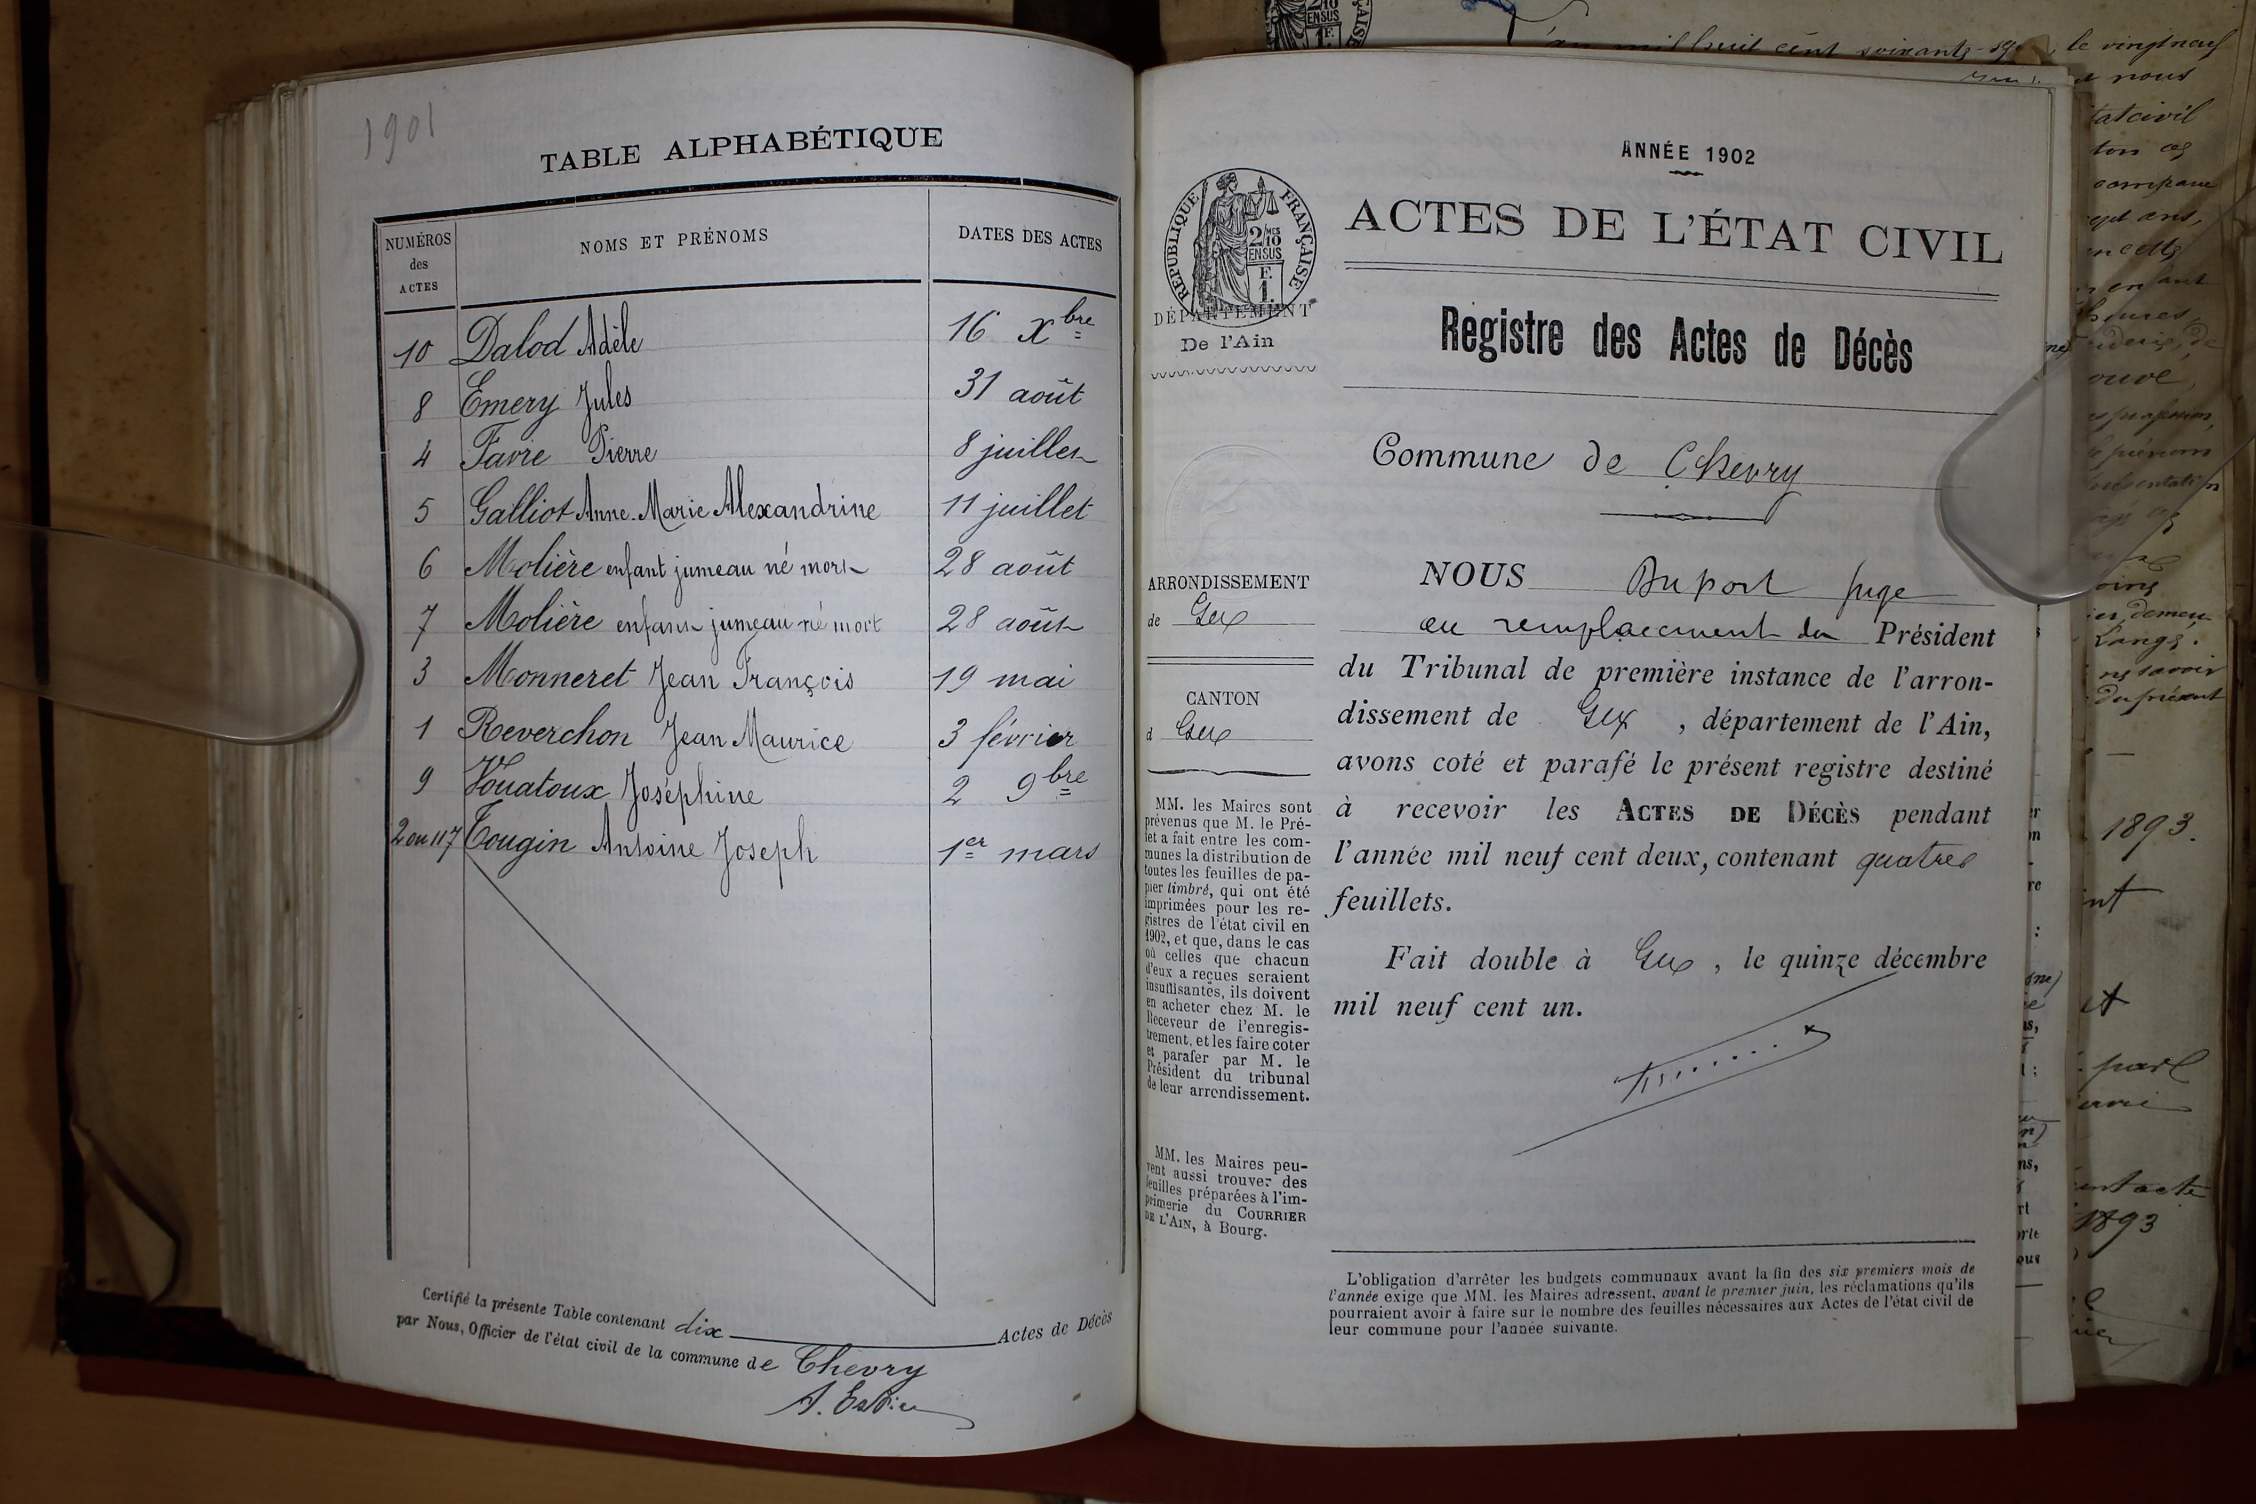 1901
TABLE ALPHABÉTIQUE
NUMÉROS des ACTES
NOMS ET PRÉNOMS
DATES DES ACTES
10 Dalod Adèle 16 Xbre
8 Emery Jules 31 août
4 Favre Pierre 8 juillet
5 Galliot Anne-Marie Alexandrine 11 juillet
6 Molière enfant jumeau né mort 28 août
7 Molière enfant jumeau né mort 28 août
3 Monneret Jean François 19 mai
1 Reverchon Jean Maurice 3 février
9 Vouatoux Joséphine 2 9bre
2 ou 117 Tougin Antoine Joseph 1er mars
Certifié la présente Table contenant dix Actes de Décès
par Nous, Officier de l'état civil de la commune de Chevry
ANNÉE 1902
RÉPUBLIQUE FRANÇAISE
2/10 MES
EN SUS
F.
1.
ACTES DE L'ÉTAT CIVIL
DÉPARTEMENT
De l'Ain
Registre des Actes de Décès
Commune de Chevry
ARRONDISSEMENT
de Gex
CANTON
d Gex
MM. les Maires sont
prévenus que M. le Pré-
fet a fait entre les com-
munes la distribution de
toutes les feuilles de pa-
pier timbré, qui ont été
imprimées pour les re-
gistres de l'état civil en
1902, et que, dans le cas
où celles que chacun
d'eux a reçues seraient
insuffisantes, ils doivent
en acheter chez M. le
Receveur de l'enregis-
trement, et les faire coter
et parafer par M. le
Président du tribunal
de leur arrondissement.
MM. les Maires peu-
vent aussi trouver des
feuilles préparées à l'im-
primerie du COURRIER
DE L'AIN, à Bourg.
NOUS Duport juge
en remplacement du Président
du Tribunal de première instance de l'arron-
dissement de Gex , département de l'Ain,
avons coté et parafé le présent registre destiné
à recevoir les ACTES DE DÉCÈS pendant
l'année mil neuf cent deux, contenant quatre
feuillets.
Fait double à Gex , le quinze décembre
mil neuf cent un.
L'obligation d'arrêter les budgets communaux avant la fin des six premiers mois de
l'année exige que MM. les Maires adressent, avant le premier juin, les réclamations qu'ils
pourraient avoir à faire sur le nombre des feuilles nécessaires aux Actes de l'état civil de
leur commune pour l'année suivante.
le vingt neuf
nous
1893.
1893